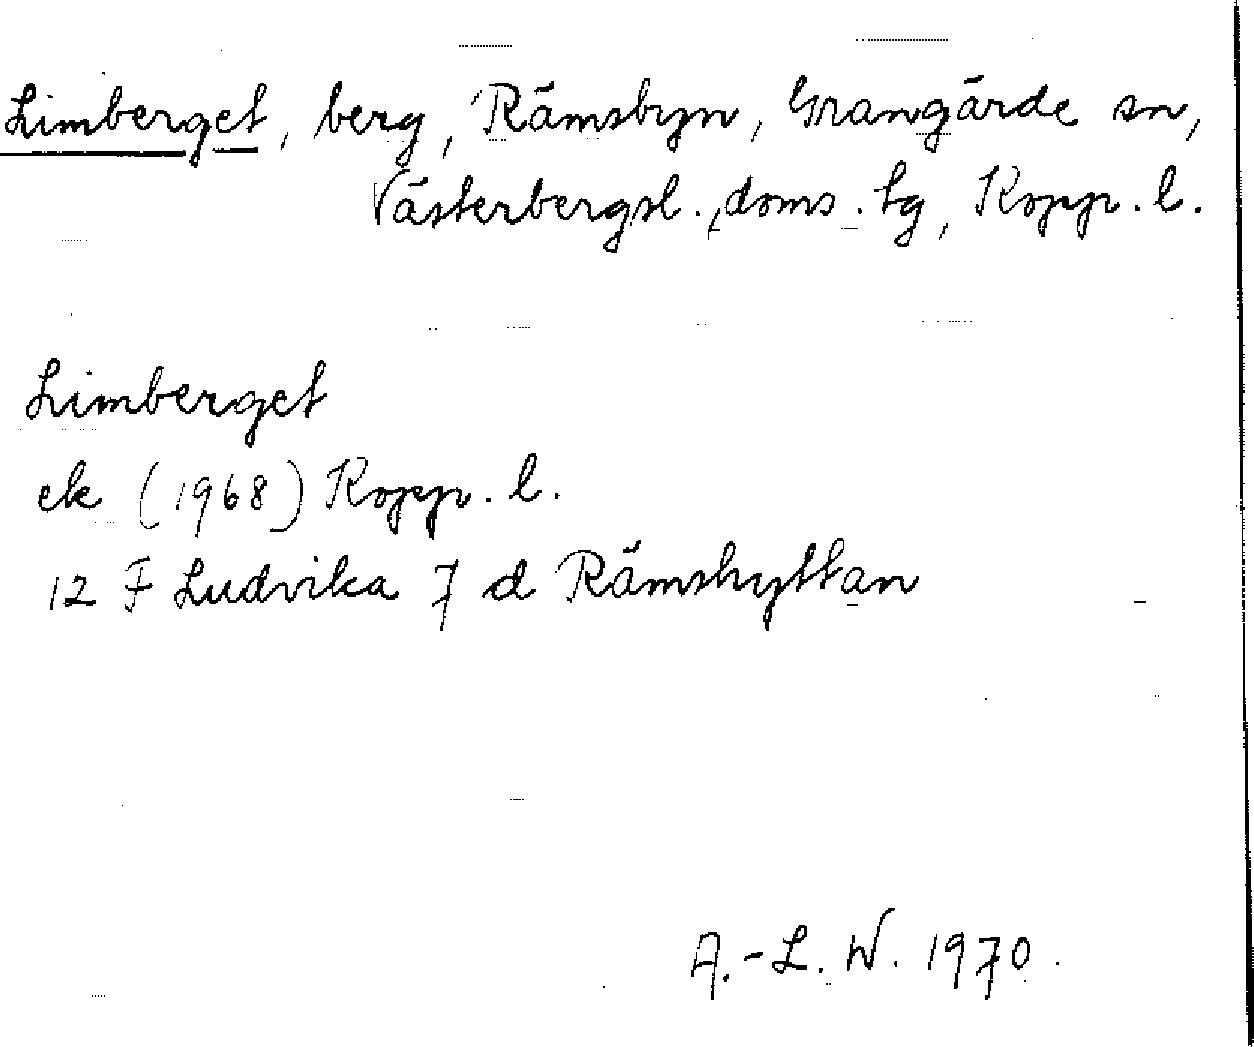 Limberget, berg, Rämsbyn, Grangärde sn,
Västerbergsl., doms. tg, Kopp. l.
Limberget
ek (1968) Kopp. l.
12 F Ludvika 7 d Rämshyttan
A.-L. W. 1970.